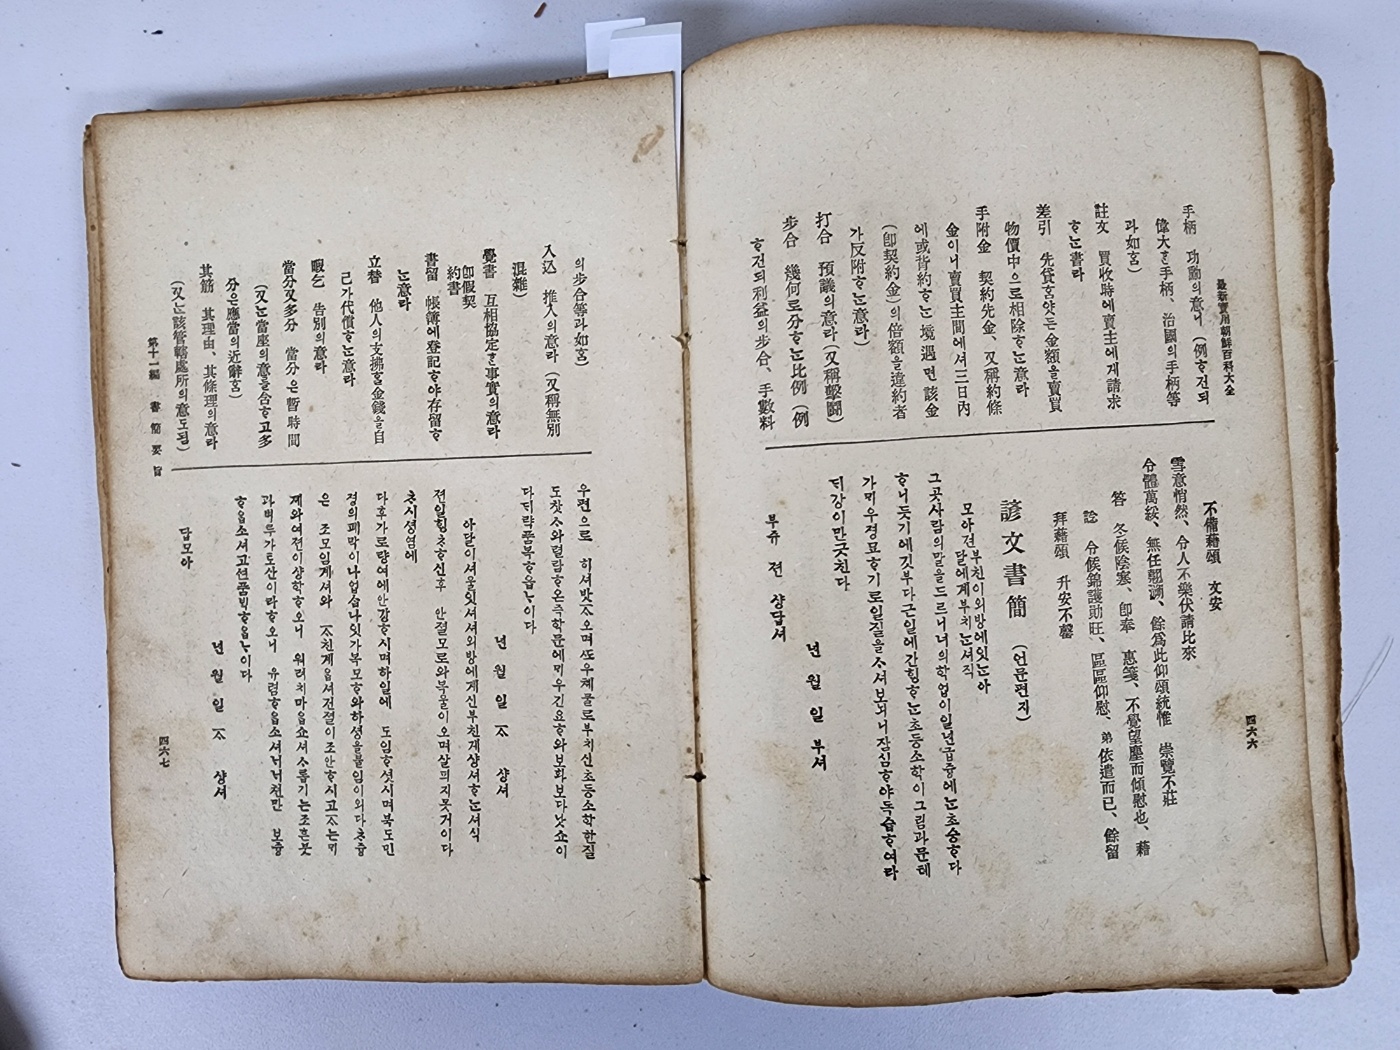 最新實用朝鮮百科大全
四六六
手柄 功勳의意니 (例ᄒᆞ건ᄃᆡ
偉大ᄒᆞᆫ手柄、治國의手柄等
과如홈)
註文 買收時에賣主에게請求
ᄒᆞᄂᆞᆫ書라
差引 先貸홈又ᄂᆞᆫ金額을賣買
物價中으로相除ᄒᆞᄂᆞᆫ意라
手附金 契約先金、又稱約條
金이니賣買主間에셔三日內
에或背約ᄒᆞᄂᆞᆫ境遇면該金
(卽契約金)의倍額을違約者
가反附ᄒᆞᄂᆞᆫ意라)
打合 預議의意라(又稱擊鬪)
步合 幾何로分ᄒᆞᄂᆞᆫ比例 (例
ᄒᆞ건ᄃᆡ利益의步合、手數料
不備藉頌 文安
雪意悄然、令人不樂伏請比來
令體萬綏、無任翹溯、餘爲此仰頌統惟 崇覽不莊
答 冬候陰塞、卽奉 惠箋、不覺望塵而傾慰也、藉
諗 令候錦護勛旺、區區仰慰、弟依遣而已、餘留
拜藉頌 升安不罄
諺文書簡 (언문편지)
모아젼부친이외방에잇ᄂᆞᆫ아
달에게부치ᄂᆞᆫ셔직
그곳사람의말을드르니너의학업이일년급즁에ᄂᆞᆫ초승ᄒᆞ다
ᄒᆞ니듯기에깃부다근일에간ᄒᆡᆼᄒᆞᄂᆞᆫ초등소학이그림과문톄
가ᄆᆡ우경묘ᄒᆞ기로일질을ᄉᆞ셔보ᄂᆡ니잠심ᄒᆞ야독습ᄒᆞ여라
ᄃᆡ강이만긋친다
년 월 일 부셔
부쥬 젼 샹답셔
의步合等과如홈)
入込 推入의意라 (又稱無別
混雜)
覺書 互相協定ᄒᆞᆫ事實의意라
卽假契
約書
書留 帳簿에登記ᄒᆞ야存留ᄒᆞ
ᄂᆞᆫ意라
立替 他人의支拂ᄒᆞᆯ金錢을自
己가代償ᄒᆞᄂᆞᆫ意라
暇乞 告別의意라
當分又多分 當分은暫時間
(又ᄂᆞᆫ當座의意를含ᄒᆞ고多
分은應當의近辭홈)
其筋 其理由、其條理의意라
(又ᄂᆞᆫ該管轄處所의意도됨)
우편으로 히셔밧ᄌᆞ오며ᄯᅩ우톄물로부치신초등소학한질
도찻ᄉᆞ와렬람ᄒᆞ온즉학문에ᄆᆡ우긴요ᄒᆞ와보화보다낫쇼이
다ᄃᆡ략품복ᄒᆞ옵ᄂᆞ이다
년 월 일 ᄌᆞ 샹셔
아달이셔울잇셔셔외방에게신부친게샹셔ᄒᆞᄂᆞᆫ셔식
젼일ᄒᆡᆼᄎᆞᄒᆞ신후 안졀모로와부울이오며살피지못거이다
ᄎᆞ시셩염에
다후가로량여에안강ᄒᆞ시며하일에 도임ᄒᆞ셧시며북도민
졍의폐막이나업습나잇가복모ᄒᆞ와하셩을불임이외다ᄎᆞ즁
은 조모임계셔와 ᄌᆞ친게옵셔젼졀이조안ᄒᆞ시고ᄌᆞ는ᄆᆡ
ᄌᆡ와여젼이샹학ᄒᆞ오니 워려치마옵쇼셔ᄉᆞ롭기는조흔붓
과벼루가토산이라ᄒᆞ오니 유렴ᄒᆞ옵소셔너너쳔만 보즁
ᄒᆞ옵소셔고션품빅ᄒᆞ옵ᄂᆞ이다
년 월 일 ᄌᆞ 샹셔
답모아
第十一編 書簡要旨
四六七